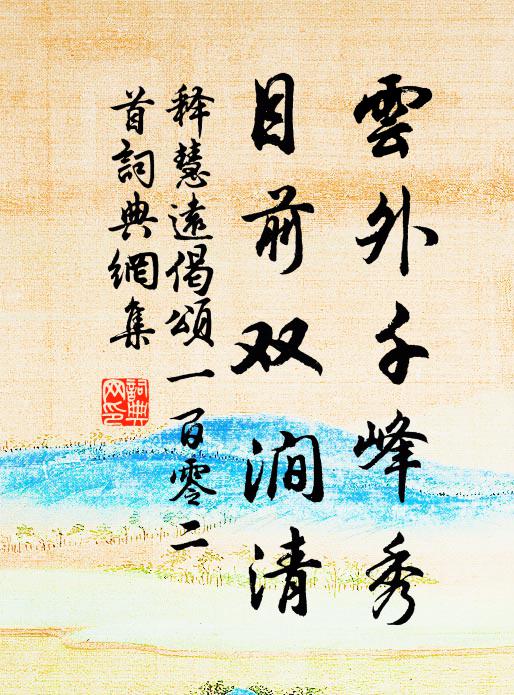 雲外千峰秀
目前双澗清
释慧遠偈頌一百零二
首詞典網集
詞典
网印